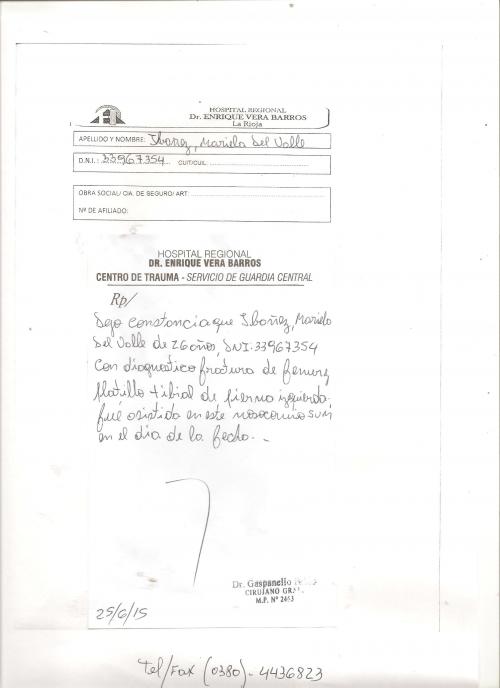 HOSPITAL REGIONAL
Dr. ENRIQUE VERA BARROS
La Rioja
APELLIDO Y NOMBRE: Ibañez, Mariela Del Valle
D.N.I.: 33967354 CUIT/CUIL:
OBRA SOCIAL/ CIA. DE SEGURO/ ART:
Nº DE AFILIADO:
HOSPITAL REGIONAL
DR. ENRIQUE VERA BARROS
CENTRO DE TRAUMA - SERVICIO DE GUARDIA CENTRAL
Rp/
Dejo constancia que Ibañez, Mariela
Del Valle de 26 años, DNI: 33967354
Con diagnostico fractura de femur y
platillo tibial de pierna izquierda,
fué asistida en este nosocomio
en el dia de la fecha.-
Dr. Gaspanello
CIRUJANO
M.P. Nº 2463
25/6/15
Tel/Fax (0380)- 4436823